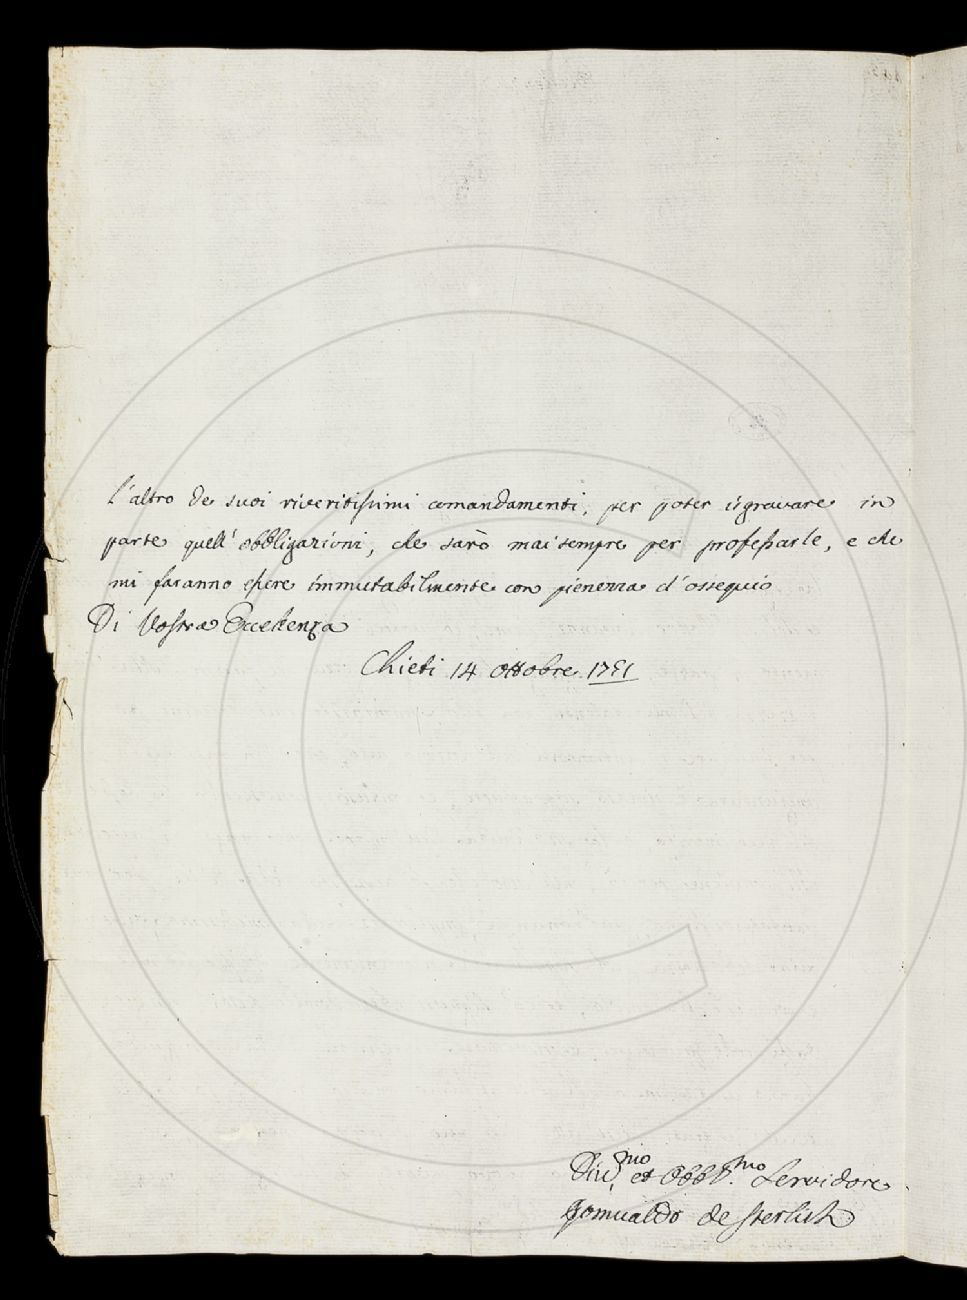 l'altro de suoi riveritissimi comandamenti, per poter isgravare in
parte quell'obbligazioni, che sarò mai sempre per professarle, e che
mi faranno essere immutabilmente con pienezza d'ossequio
Di Vostra Eccellenza
Chieti 14 ottobre 1751
Div.mo et Obbl.mo Servidore
Romualdo de Sterlich